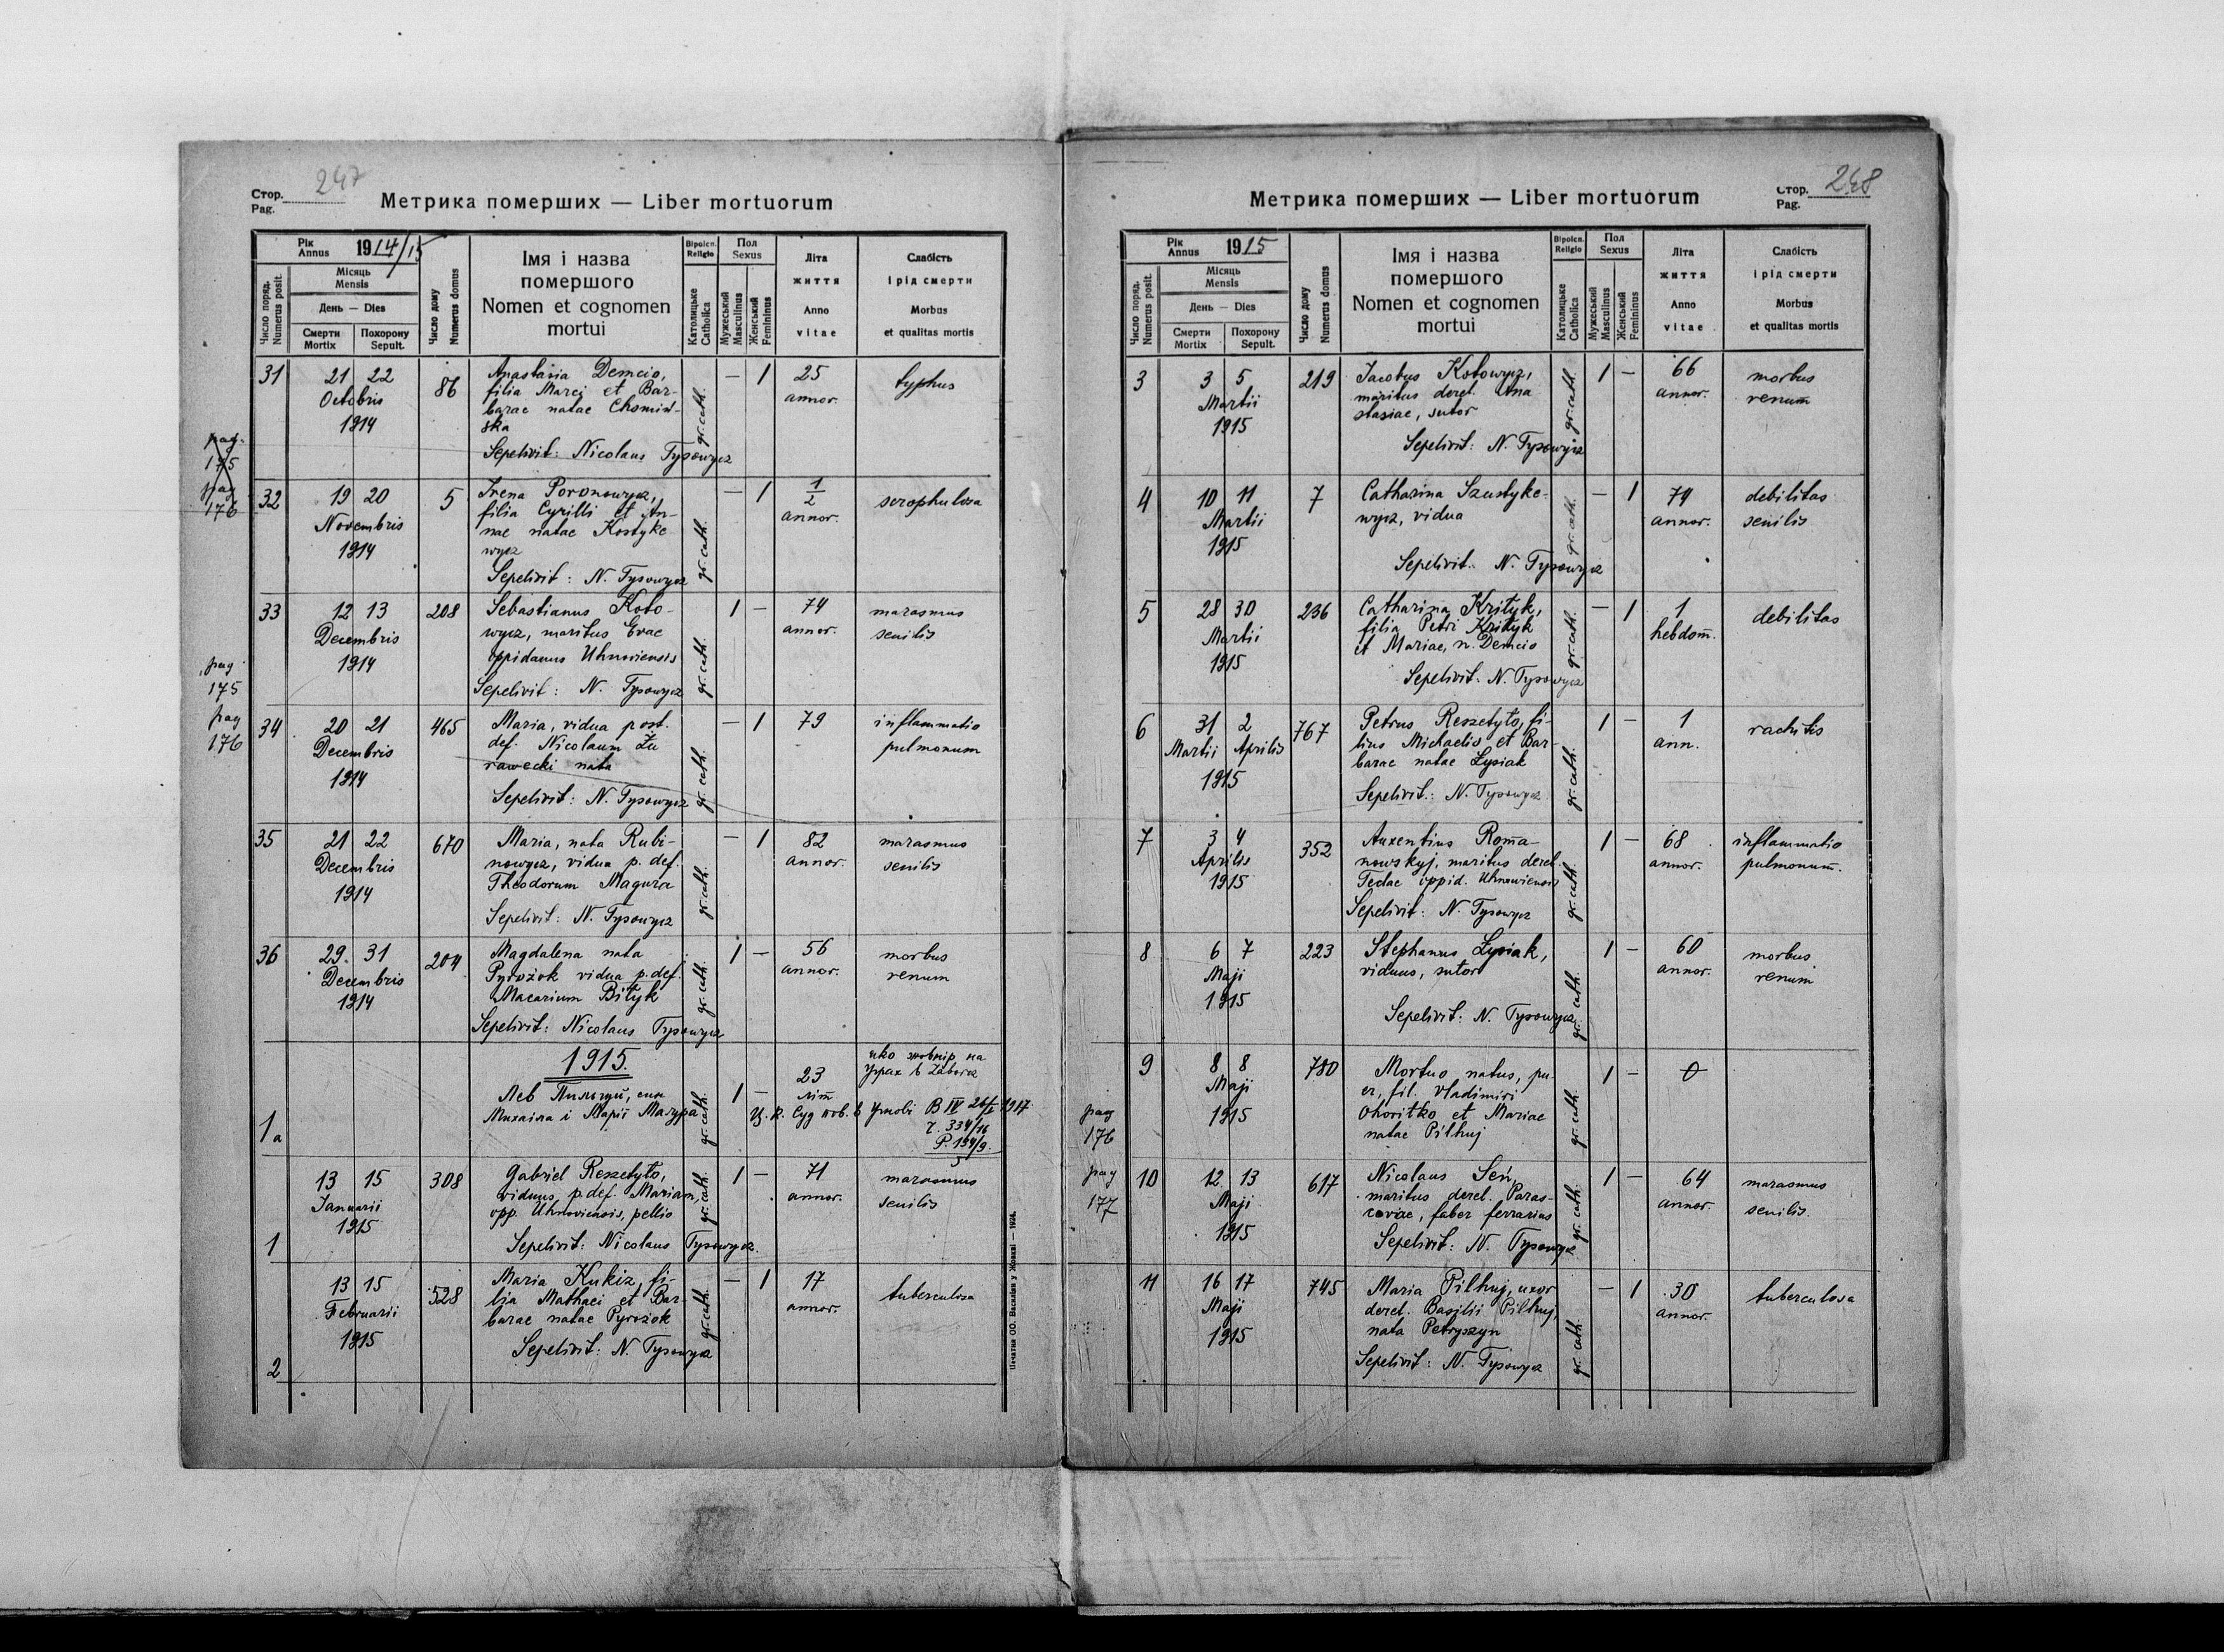 Стор. 247
Pag.
Метрика померших — Liber mortuorum
Рік Annus 1914/15
Місяць Mensis
День — Dies
Число поряд. Numerus posit.
Смерти Mortix
Похорону Sepult.
Число дому Numerus domus
Імя і назва
помершого
Nomen et cognomen
mortui
Віроісп. Religio
Католицьке Catholica
Пол Sexus
Мужеський Masculinus
Женський Femininus
Літа
життя
Anno
vitae
Слабість
і рід смерти
Morbus
et qualitas mortis
31 21 22 86 Anastasia Demcio, gr. cath. — 1 25 typhus
Octobris filia Marci et Bar- annor.
1914 barae natae Chomin-
ska
Sepelivit: Nicolaus Tysowycz
pag.
175
pag
176
32 19 20 5 Irena Poronowycz, gr. cath. — 1 1/2 scrophulosa
Novembris filia Cyrilli et An- annor.
1914 nae natae Kostyke
wycz
Sepelivit: N. Tysowycz
33 12 13 208 Sebastianus Koto- gr. cath. 1 — 74 marasmus
Decembris wycz, maritus Evae annor. senilis
1914 oppidanus Uhnoviensis
Sepelivit: N. Tysowycz
pag
175
pag
176
34 20 21 465 Maria, vidua post. gr. cath. — 1 79 inflammatio
Decembris def. Nicolaum Żu pulmonum
1914 rawecki nata
Sepelivit: N. Tysowycz
35 21 22 670 Maria, nata Rubi- gr. cath. — 1 82 marasmus
Decembris nowycz, vidua p. def. annor. senilis
1914 Theodorum Magura
Sepelivit: N. Tysowycz
36 29. 31 204 Magdalena nata gr. cath. 1 — 56 morbus
Decembris Pyrożok vidua p. def. annor. renum
1914 Macarium Bityk
Sepelivit: Nicolaus Tysowycz
1915.
1a Лев Пильгуй, син gr. cath. 1 — 23 яко жовнір на
Михаїла і Марії Мазура літ
Ц. к. Суд пов. в Угнові В IV 26/I 1917
ч. 334/16
P. 194/3
1 13 15 308 Gabriel Reszetyto, gr. cath. 1 — 71 marasmus
Januarii viduus, p. def. Mariam, annor. senilis
1915 opp. Uhnoviensis, pellio
Sepelivit: Nicolaus Tysowycz.
2 13 15 528 Maria Kukiz, fi- gr. cath. — 1 17 tuberculosa
Februarii lia Mathaei et Bar- annor.
1915 barae natae Pyrożok
Sepelivit: N. Tysowycz
Печатня ОО. Василіян у Жовкві — 1924.
Метрика померших — Liber mortuorum
Стор. 248
Pag.
Рік Annus 1915
Місяць Mensis
День — Dies
Число поряд. Numerus posit.
Смерти Mortix
Похорону Sepult.
Число дому Numerus domus
Імя і назва
помершого
Nomen et cognomen
mortui
Віроісп. Religio
Католицьке Catholica
Пол Sexus
Мужеський Masculinus
Женський Femininus
Літа
життя
Anno
vitae
Слабість
і рід смерти
Morbus
et qualitas mortis
3 3 5 219 Jacobus Kotowycz, gr. cath. 1 — 66 morbus
Martii maritus derel. Ana annor. renum
1915 stasiae, sutor
Sepelivit: N. Tysowycz
4 10 11 7 Catharina Szustyke- gr. cath. — 1 74 debilitas
Martii wycz, vidua annor. senilis
1915
Sepelivit: N. Tysowycz
5 28 30 236 Catharina Krityk, gr. cath. — 1 1 debilitas
Martii filia Petri Krityk hebdom.
1915 et Mariae, n. Demcio
Sepelivit: N. Tysowycz
6 31 2 767 Petrus Reszetyto, fi- gr. cath. 1 — 1 rachitis
Martii Aprilis lius Michaelis et Bar- ann.
1915 barae natae Łysiak
Sepelivit: N. Tysowycz
7 3 4 352 Auxentius Roma- gr. cath. 1 — 68 inflammatio
Aprilis nowskyj, maritus derel. annor. pulmonum.
1915 Teclae oppid. Uhnowiensis
Sepelivit: N. Tysowycz
8 6 7 223 Stephanus Łysiak, gr. cath. 1 — 60 morbus
Maji viduus, sutor annor. renum
1915
Sepelivit: N. Tysowycz
9 8 8 780 Mortuo natus, pu- gr. cath. 1 — 0
Maji er, fil. Vladimiri
1915 Ohoritko et Mariae
natae Pilhuj
pag
176
pag
177
10 12 13 617 Nicolaus Seń, gr. cath. 1 — 64 marasmus
Maji maritus derel. Paras- annor. senilis.
1915 ceviae, faber ferrarius
Sepelivit: N. Tysowycz
11 16 17 745 Maria Pilhuj, uxor gr. cath. — 1 30 tuberculosa
Maji derel. Basilii Pilhuj, annor.
1915 nata Petryszyn
Sepelivit: N. Tysowycz